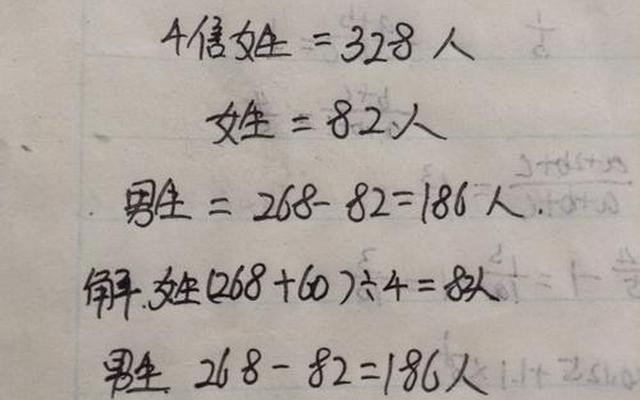 4倍女生 = 328人
女生 = 82人
男生 = 268-82=186人.
解.女生(268+60)÷4=82人
男生 268-82=186人